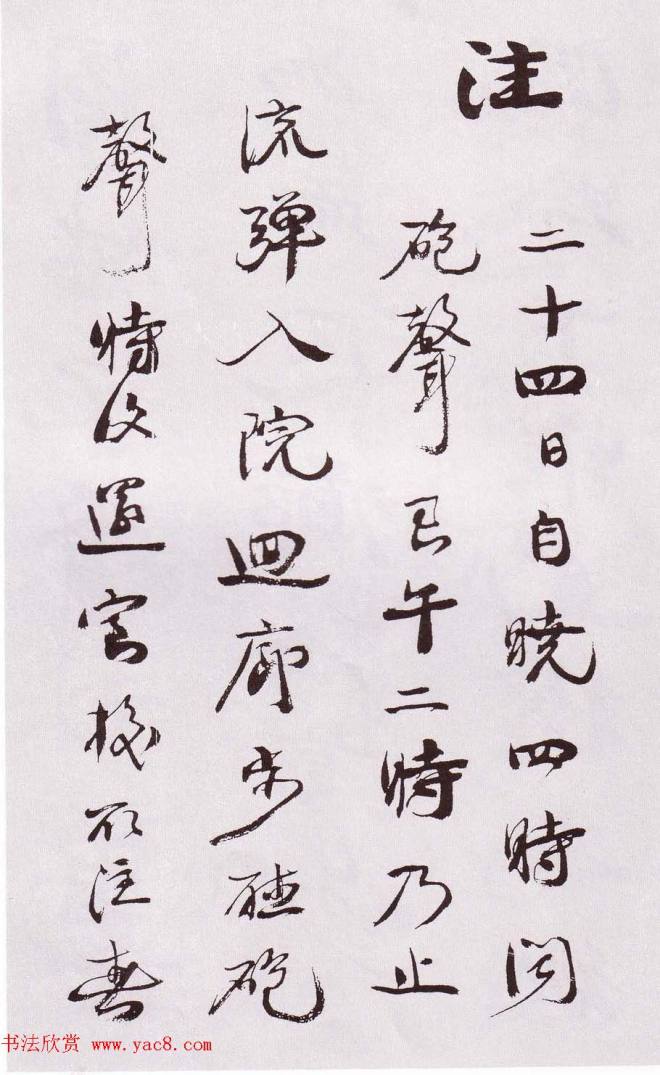 注
二十四日自曉四時聞
砲聲午二時乃止
流彈入院迴廊步聽砲
聲還校所注書
书法欣赏 www.yac8.com